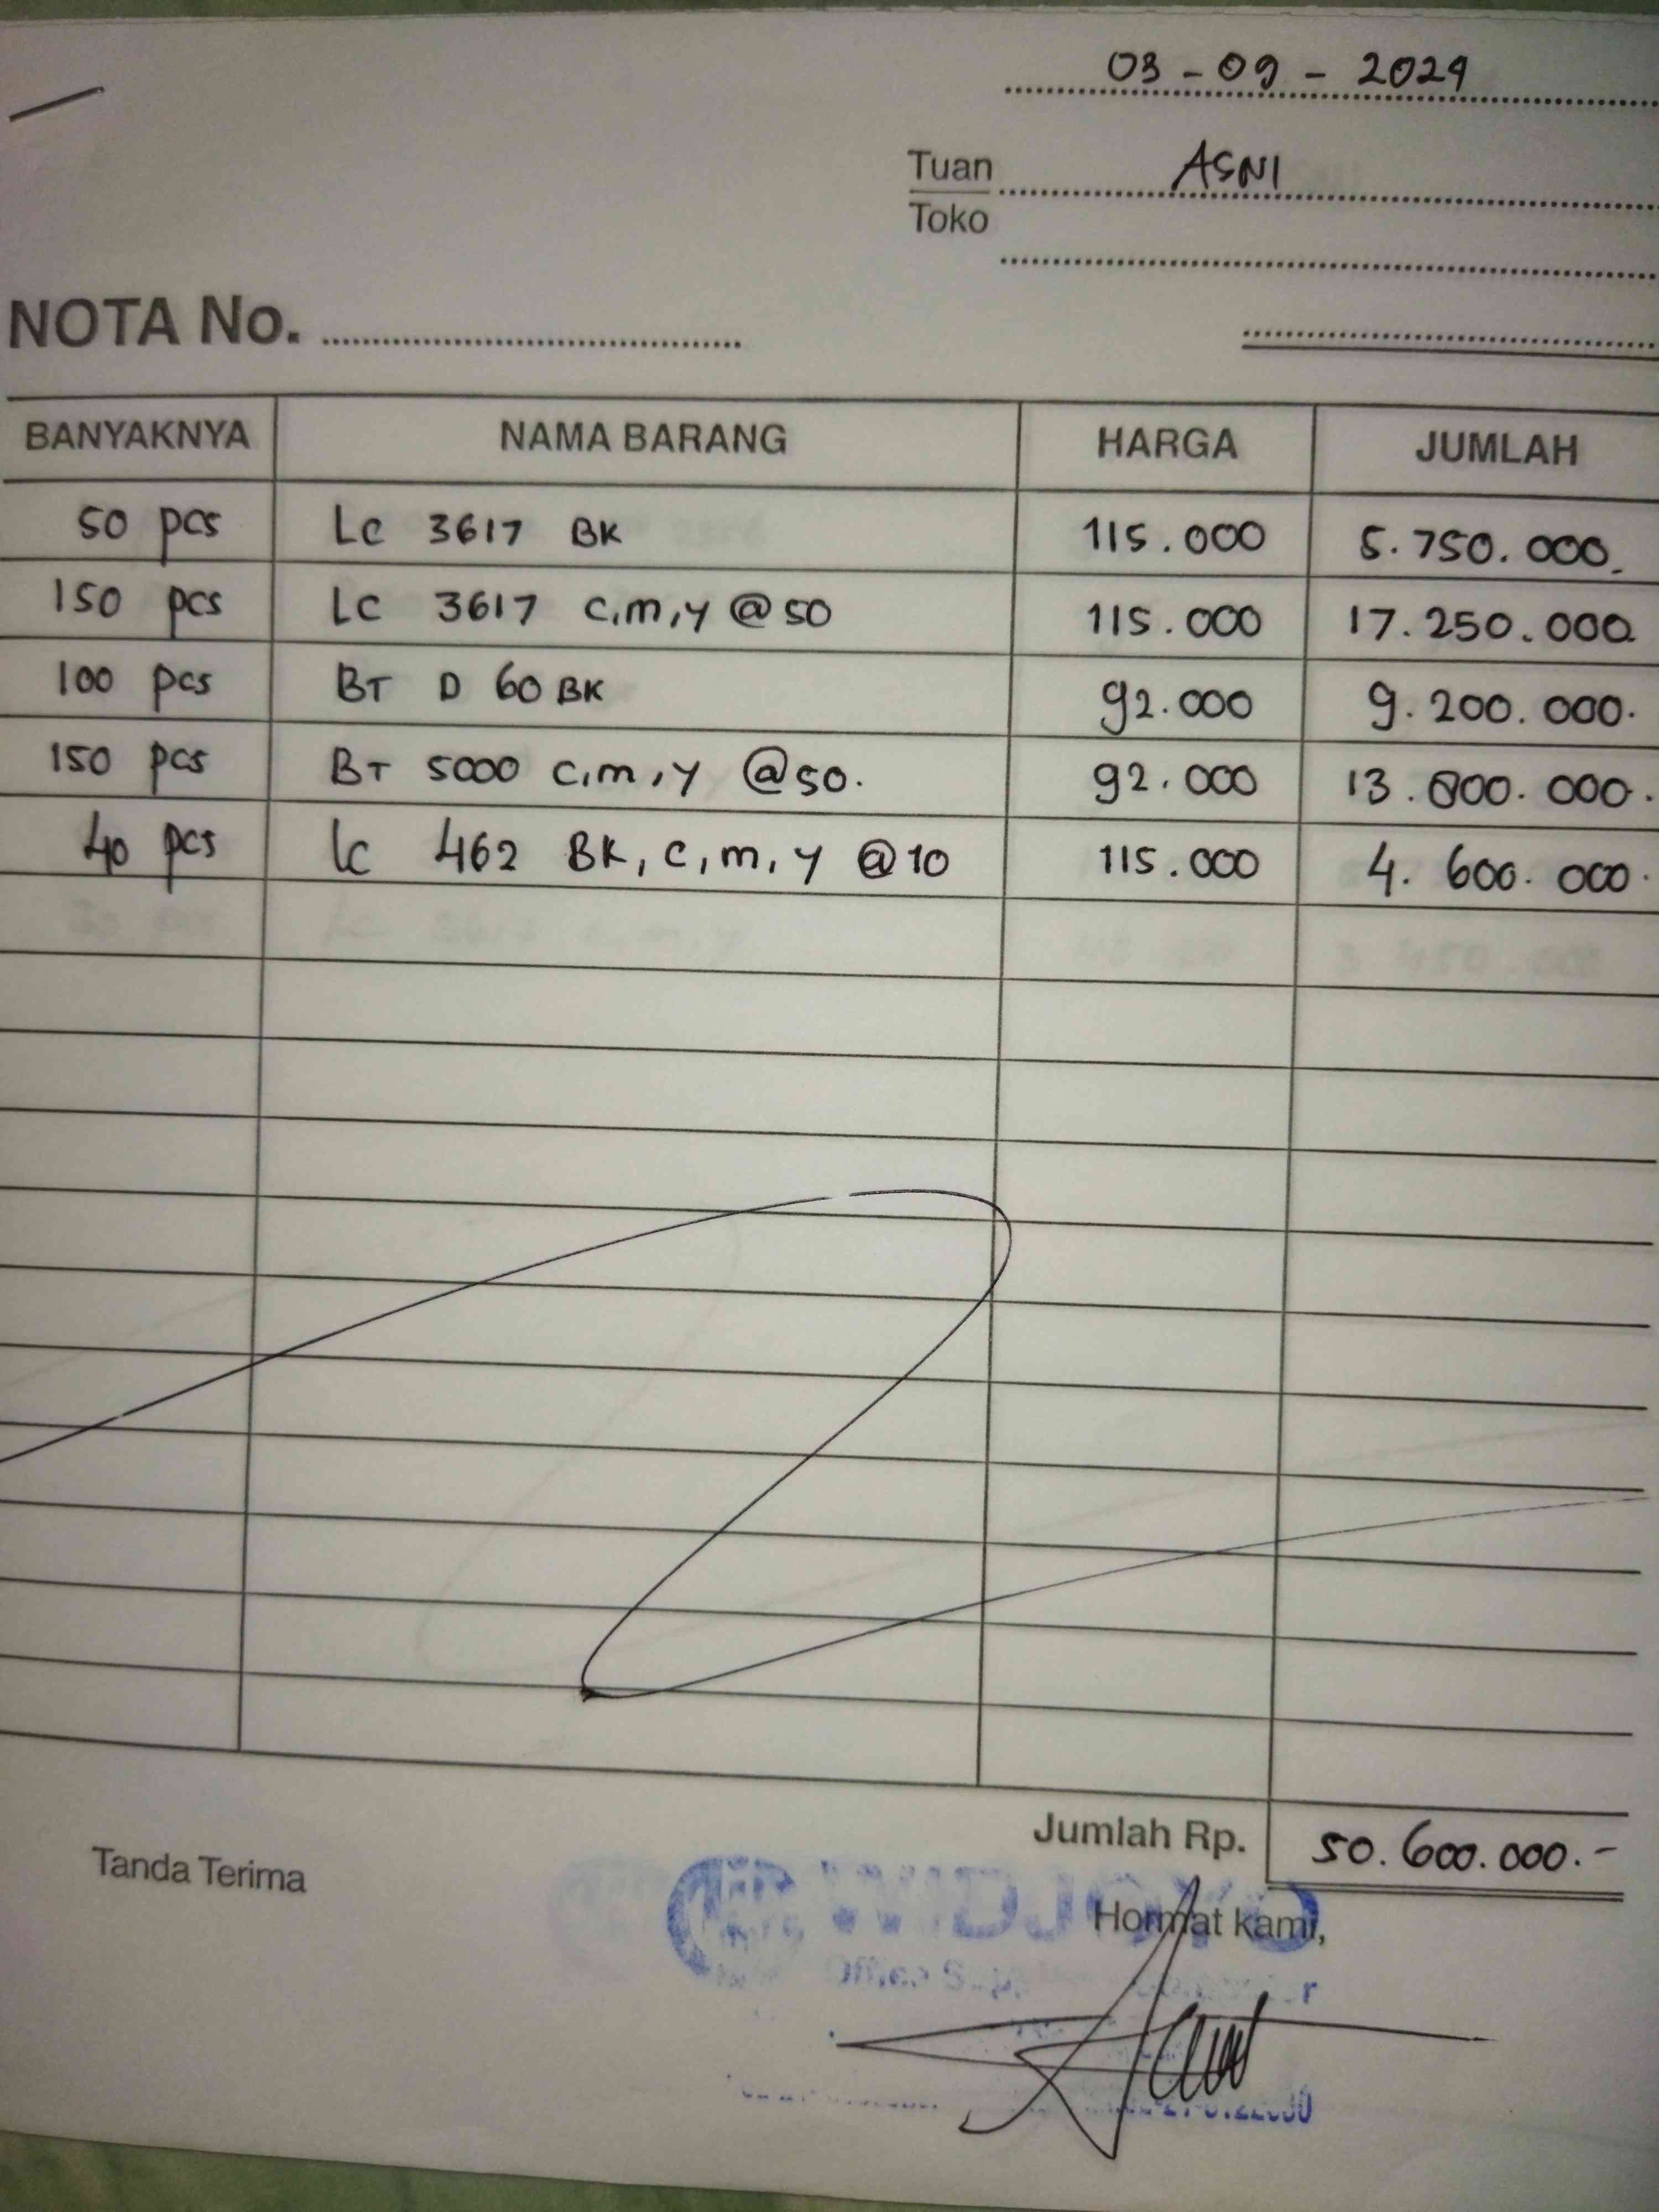 03 - 09 - 2024
Tuan ASNI
Toko
NOTA No.
BANYAKNYA NAMA BARANG HARGA JUMLAH
50 pcs LC 3617 BK 115.000 5.750.000
150 pcs LC 3617 C,m,y @50 115.000 17.250.000
100 pcs BT D 60 BK 92.000 9.200.000.
150 pcs BT 5000 C,m,y @50. 92.000 13.800.000.
40 pcs LC 462 BK, C, m, y @10 115.000 4.600.000.
Jumlah Rp. 50.600.000.-
Tanda Terima
Hormat kami,